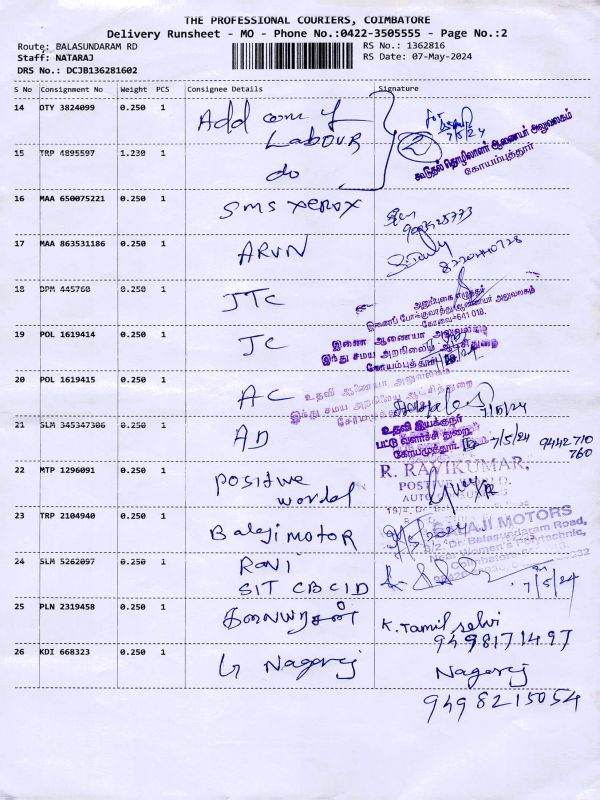 THE PROFESSIONAL COURIERS, COIMBATORE
Delivery Runsheet - MO - Phone No.:0422-3505555 - Page No.:2
Route: BALASUNDARAM RD RS No.: 1362816
Staff: NATARAJ RS Date: 07-May-2024
DRS No.: DCJB136281602
S No Consignment No Weight PCS Consignee Details Signature
14 DTY 3824099 0.250 1 Add com of
LABOUR
for 7/5/24
2
கூடுதல் தொழிலாளர் ஆணையர் அலுவலகம்
கோயம்புத்தூர்
15 TRP 4895597 1.230 1 do
16 MAA 650075221 0.250 1 SMS XEROX
17 MAA 863531186 0.250 1 ARVN
18 DPM 445760 0.250 1 JTC
அனுப்புகை எழுத்தர்
இணைப் போக்குவரத்து ஆணையர் அலுவலகம்
கோவை-641 018.
19 POL 1619414 0.250 1 JC
இணை ஆணையர் அலுவலகம்
இந்து சமய அறநிலைய ஆட்சித்துறை
கோயம்புத்தூர்
20 POL 1619415 0.250 1 AC
உதவி ஆணையர் அலுவலகம்
இந்து சமய அறநிலைய ஆட்சித்துறை
7/5/24
21 SLM 345347306 0.250 1 AD
உதவி இயக்குநர்
பட்டு வளர்ச்சி துறை,
கோயமுத்தூர். 7/5/24 9442710
760
22 MTP 1296091 0.250 1 positive
wordal
R. RAVIKUMAR,
23 TRP 2104940 0.250 1 Balaji MOTOR
BALAJI MOTORS
8/2, Dr. Balasundaram Road,
Near Women's Polytechnic,
24 SLM 5262097 0.250 1 RANI
SIT CBCID 7/5/24
25 PLN 2319458 0.250 1 கலையரசன் K. Tamil selvi
9498171497
26 KDI 668323 0.250 1 G Nagaraj Nagaraj
9498215054